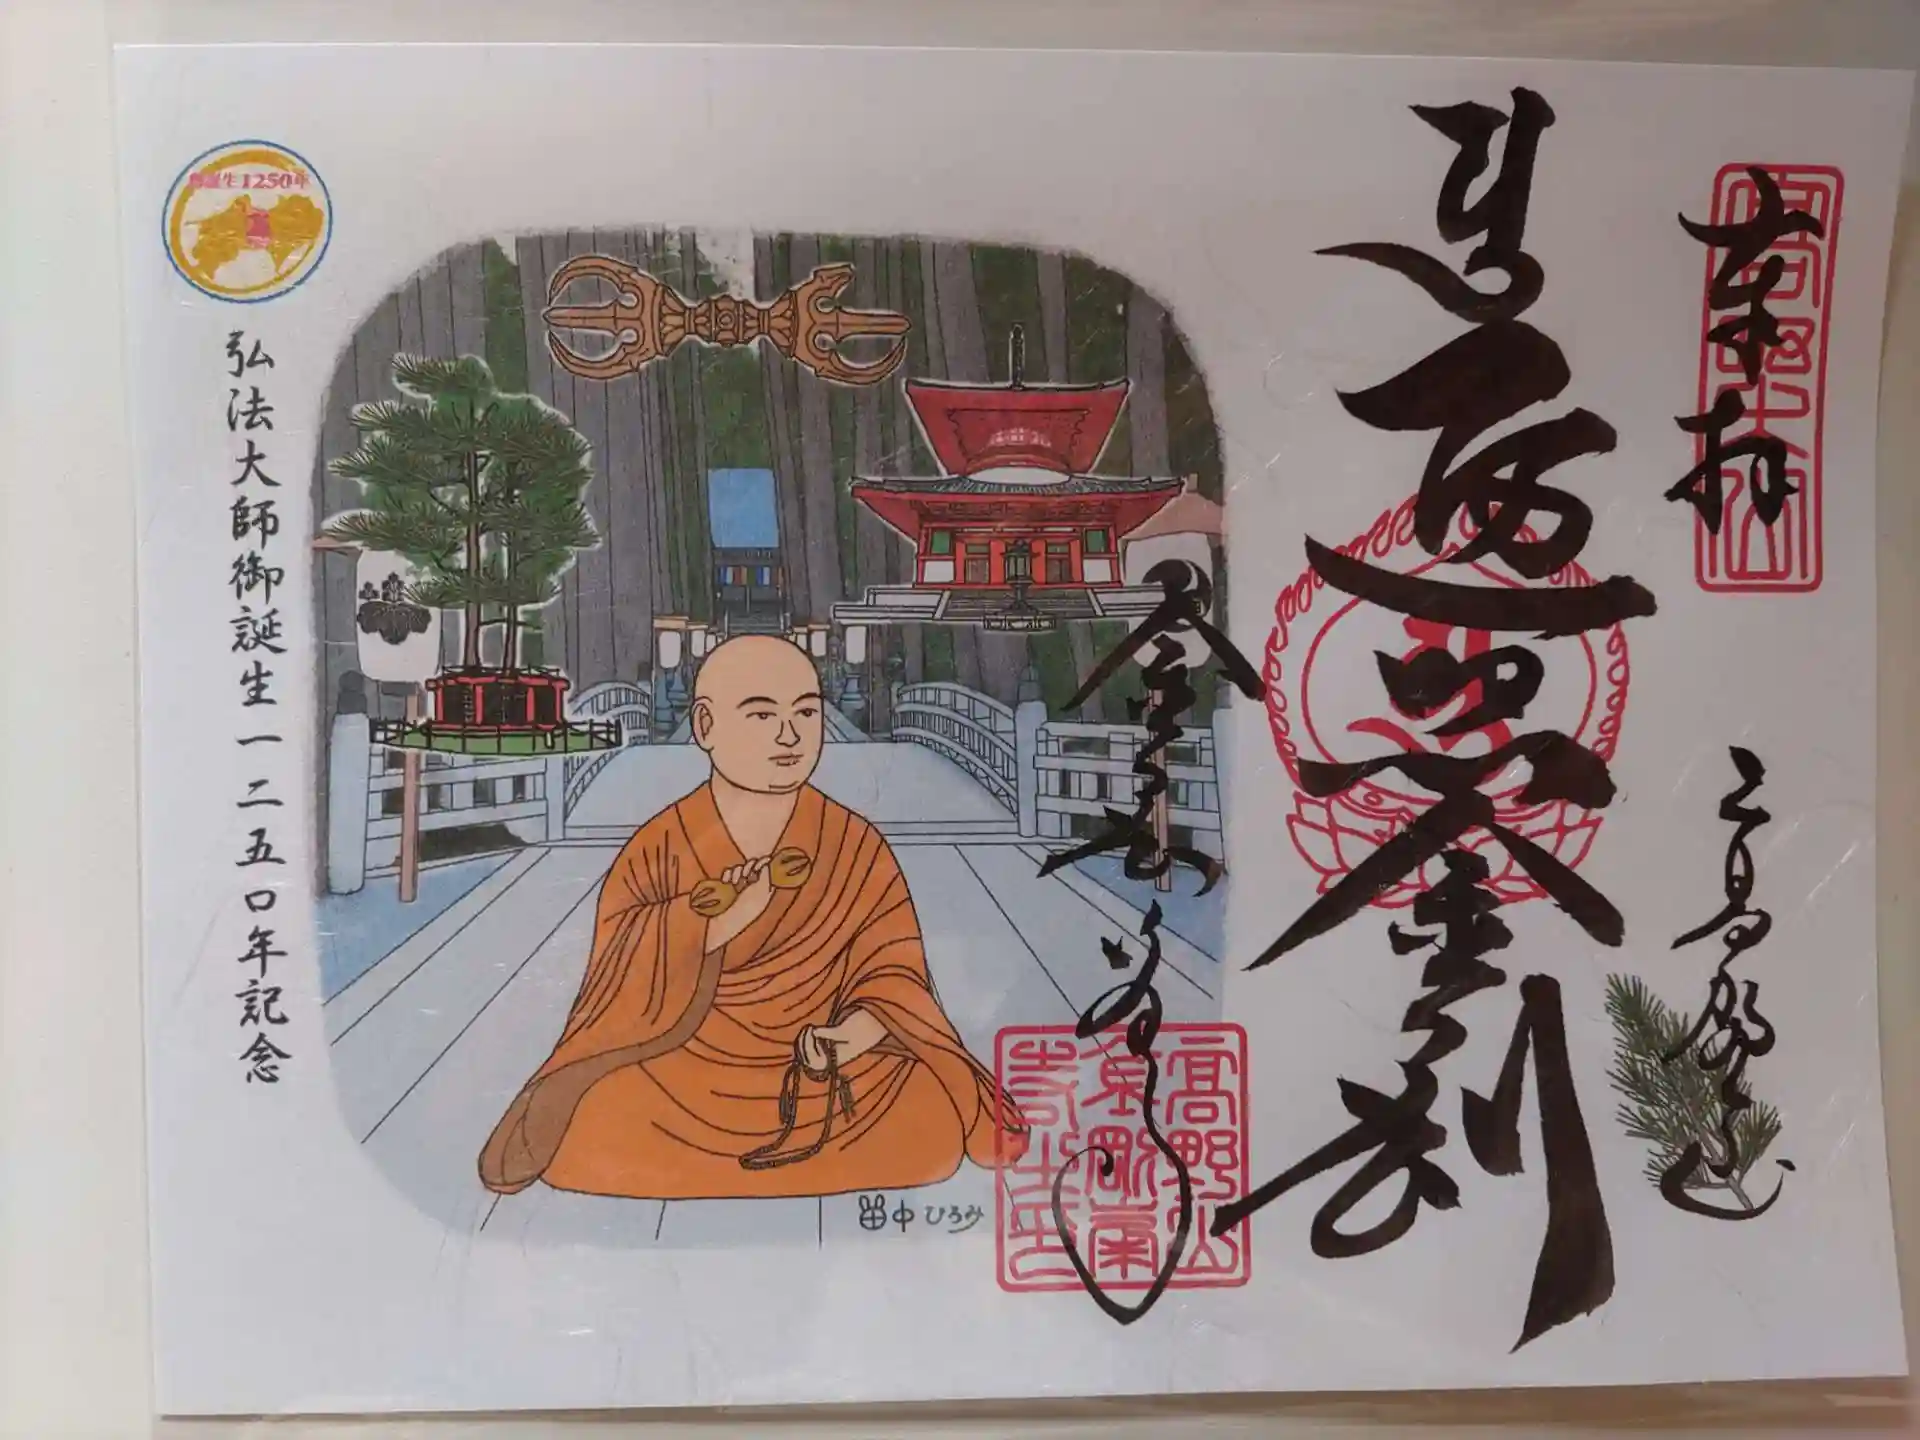 奉拝
高野山
遍照金剛
金剛峯寺
高野山
金剛峯
寺之印
田中ひろみ
御誕生1250年
弘法大師御誕生一二五〇年記念